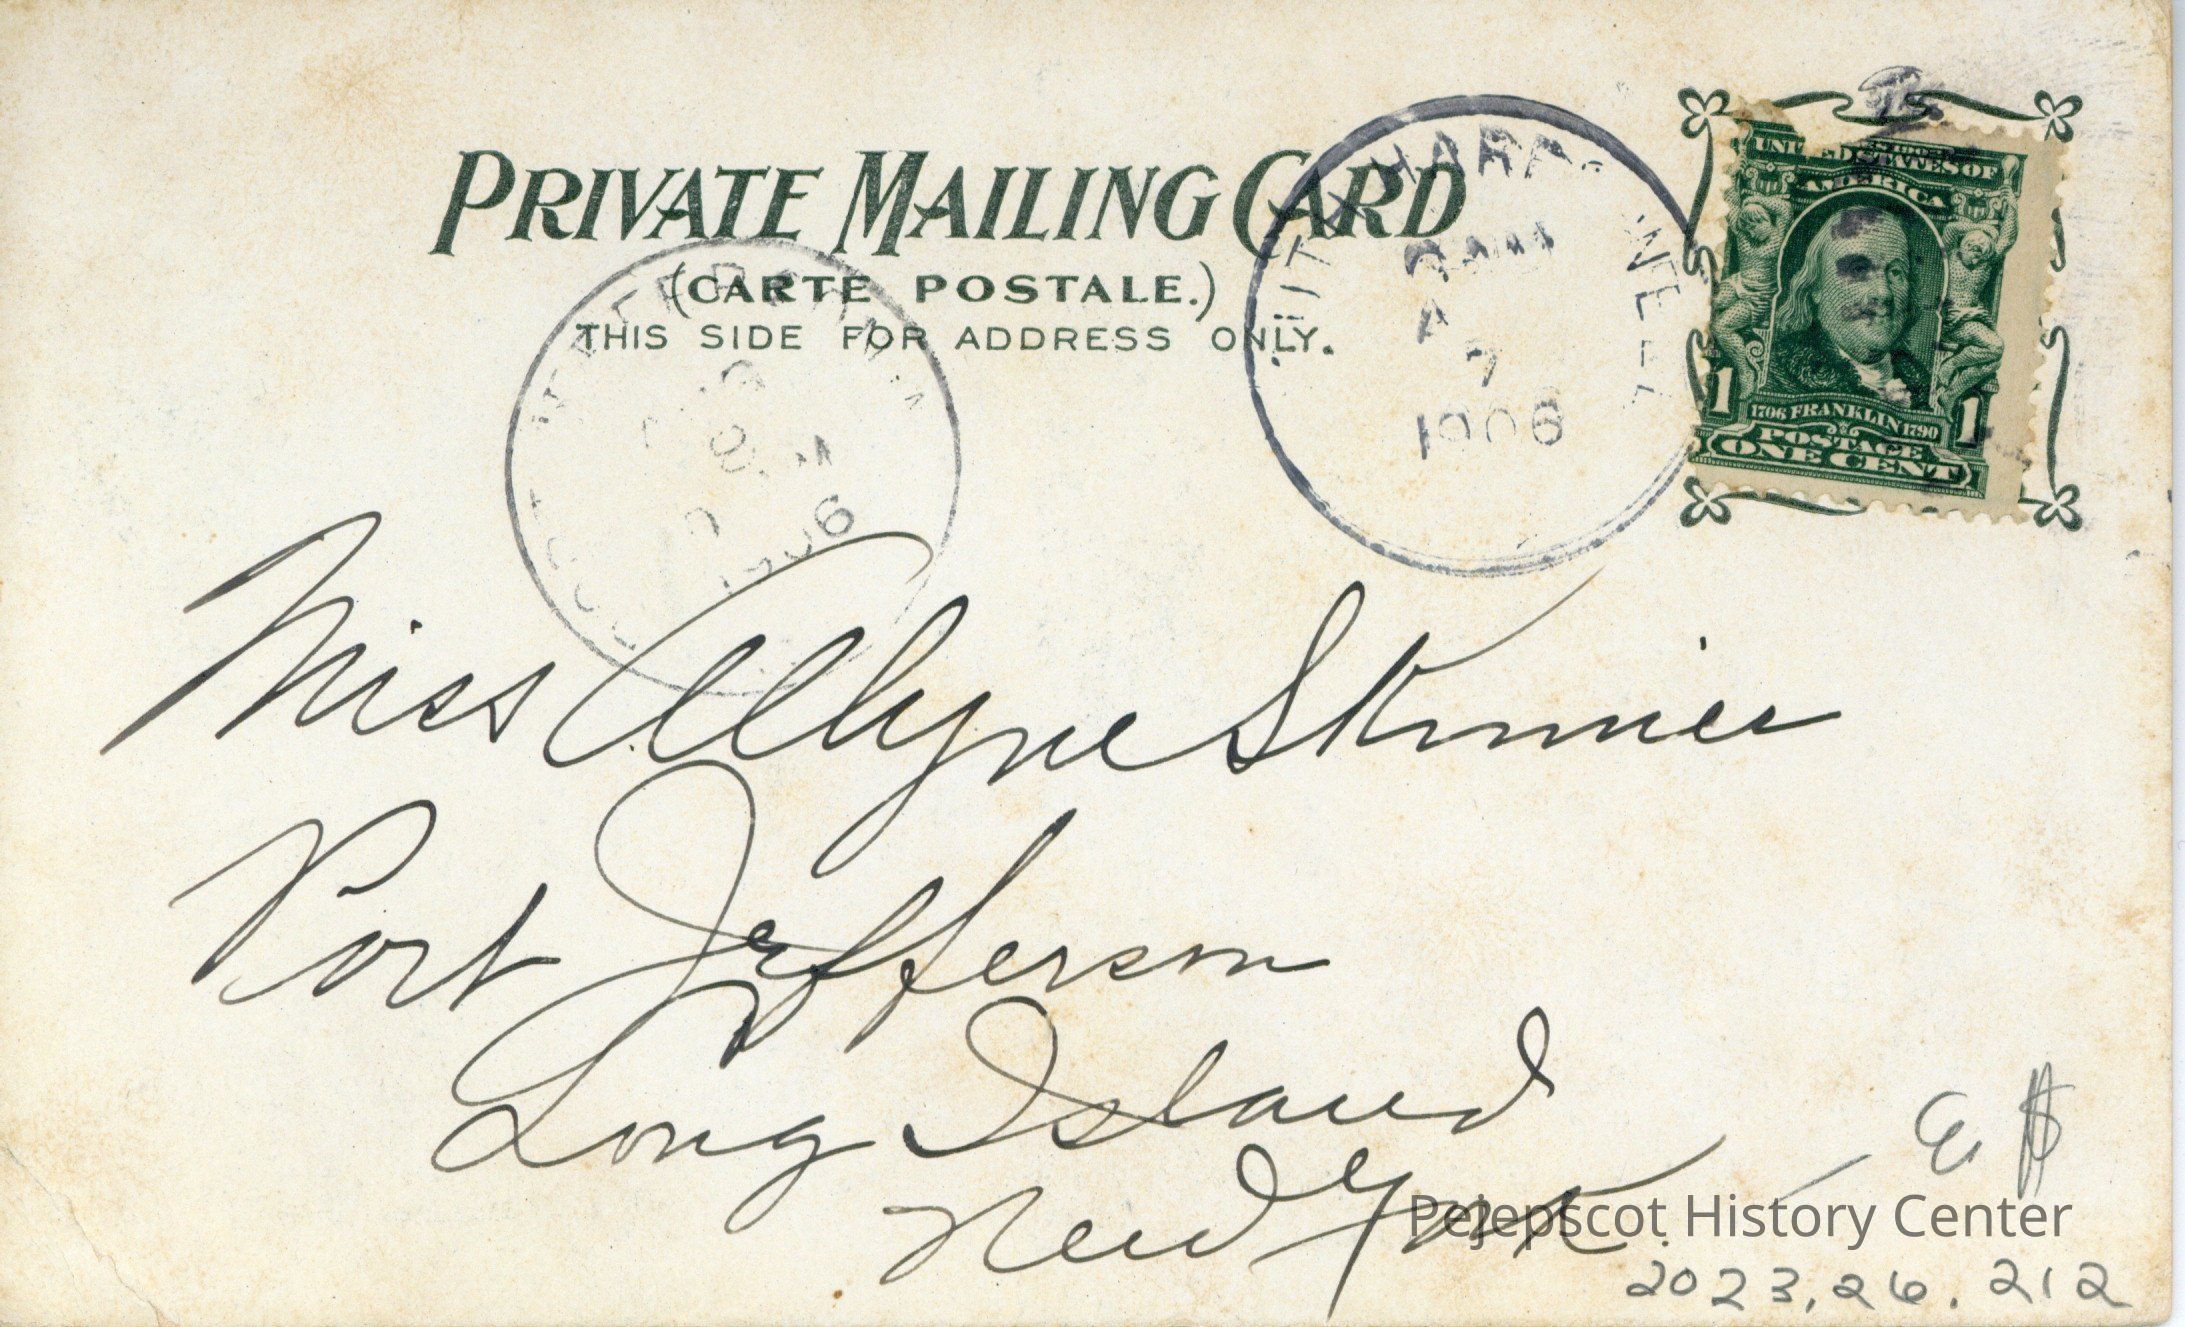 PRIVATE MAILING CARD
(CARTE POSTALE.)
THIS SIDE FOR ADDRESS ONLY.
HARP WELL
A
7
1906
1906
UNITED STATES OF
AMERICA
1 1
1706 FRANKLIN 1790
POSTAGE
ONE CENT
Miss Allyne Skinner
Port Jefferson
Long Island
New York.
Pejepscot History Center
2023.26.212